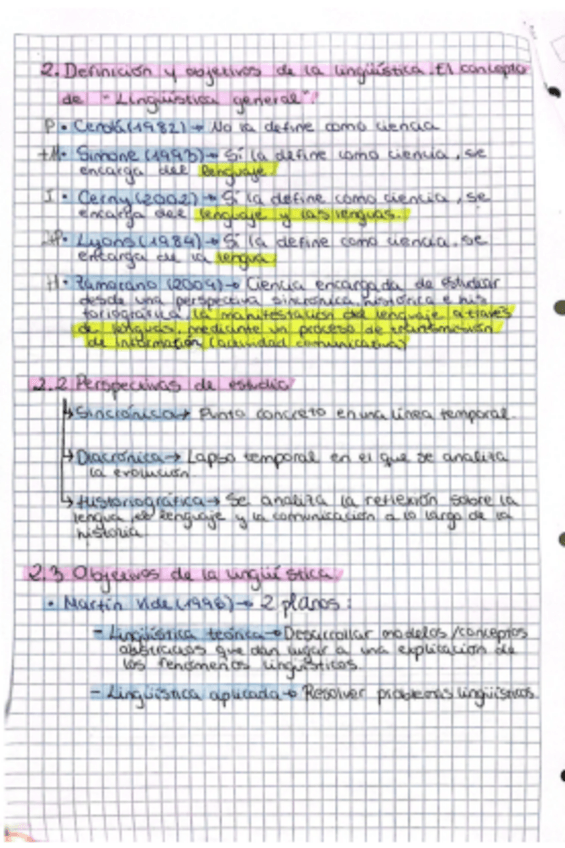 2. Definición y objetivos de la lingüística. El concepto
de "Lingüística general"
P • Cerdá (1982) → No la define como ciencia
+M• Simone (1993) → Sí la define como ciencia, se
encarga del lenguaje.
I • Cerny (2002) → Sí la define como ciencia, se
encarga del lenguaje y las lenguas.
• Lyons (1984) → Sí la define como ciencia, se
encarga de la lengua.
H • Zamorano (2009) → Ciencia encargada de estudiar
desde una perspectiva sincrónica, histórica e his
toriográfica la manifestación del lenguaje a través
de lenguas, mediante un proceso de transmisión
de información (actividad comunicativa)
2.2 Perspectivas de estudio
↳ Sincrónica → Punto concreto en una línea temporal.
↳ Diacrónica → Lapso temporal en el que se analiza
la evolución.
↳ Historiográfica → Se analiza la reflexión sobre la
lengua, el lenguaje y la comunicación a lo largo de la
historia.
2.3 Objetivos de la lingüística
• Martín Vide (1996) → 2 planos:
- Lingüística teórica → Desarrollar modelos/conceptos
abstractos que dan lugar a una explicación de
los fenómenos lingüísticos.
- Lingüística aplicada → Resolver problemas lingüísticos.